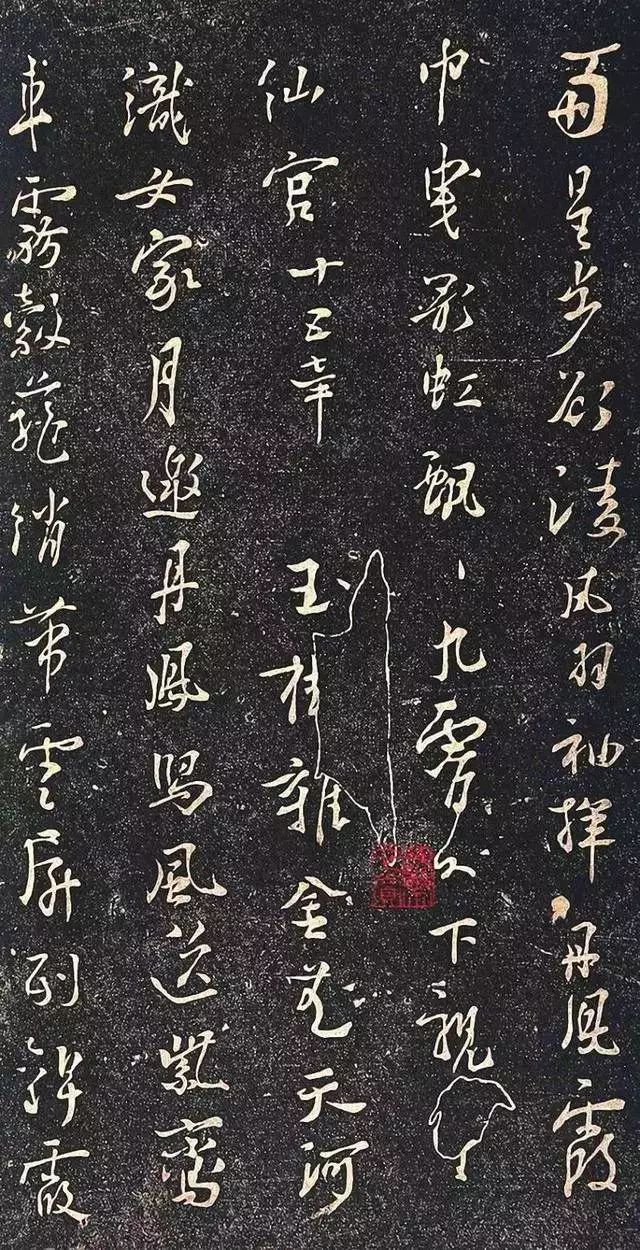 雨星步欲凌風羽袖揮丹鳳霞
巾曳彩虹飄〻九霄外下視望
仙宮十五章
玉桂雜金花天河
織女家月邀丹鳳舄風送紫鸞
車霧縠籠綃帶雲屏列錦霞